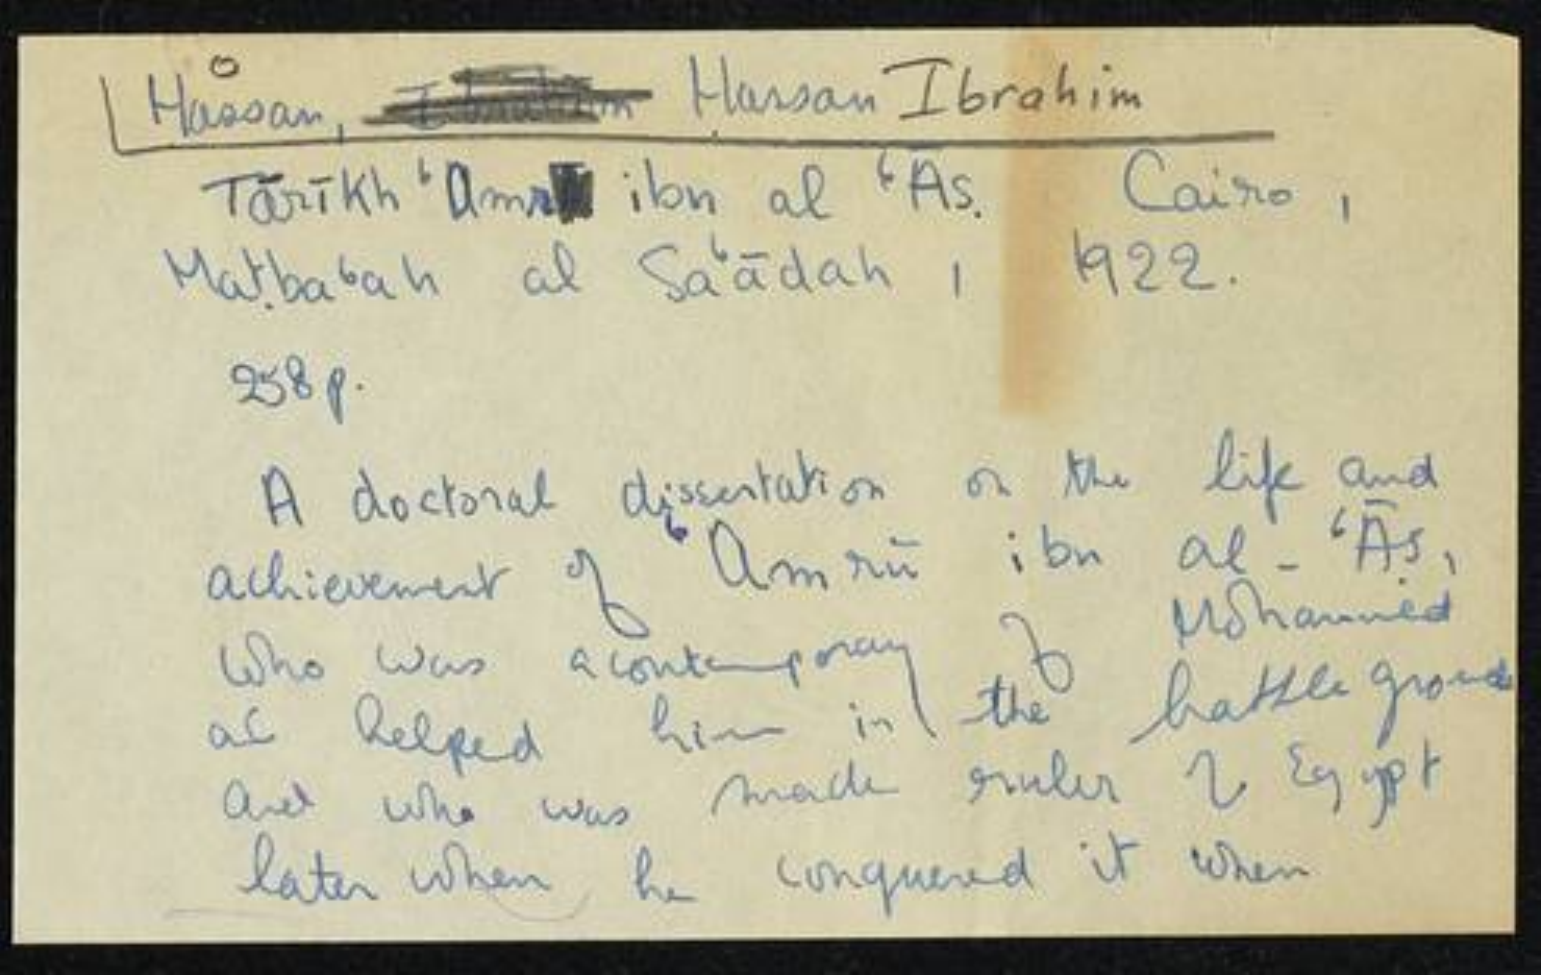 Hassan, Hassan Ibrahim
Tārīkh ʻAmr ibn al ʻĀṣ. Cairo,
Maṭbaʻah al Saʻādah, 1922.
258 p.
A doctoral dissertation on the life and
achievement of ʻAmrū ibn al-ʻĀṣ,
who was a contemporary of Mohammed
helped him in the battle grounds
and who was made ruler of Egypt
later when he conquered it when